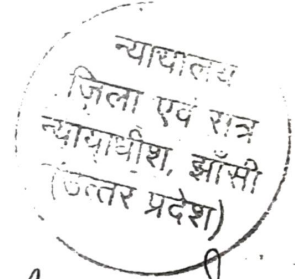 न्यायालय
ज़िला एवं सत्र
न्यायाधीश, झाँसी
(उत्तर प्रदेश)